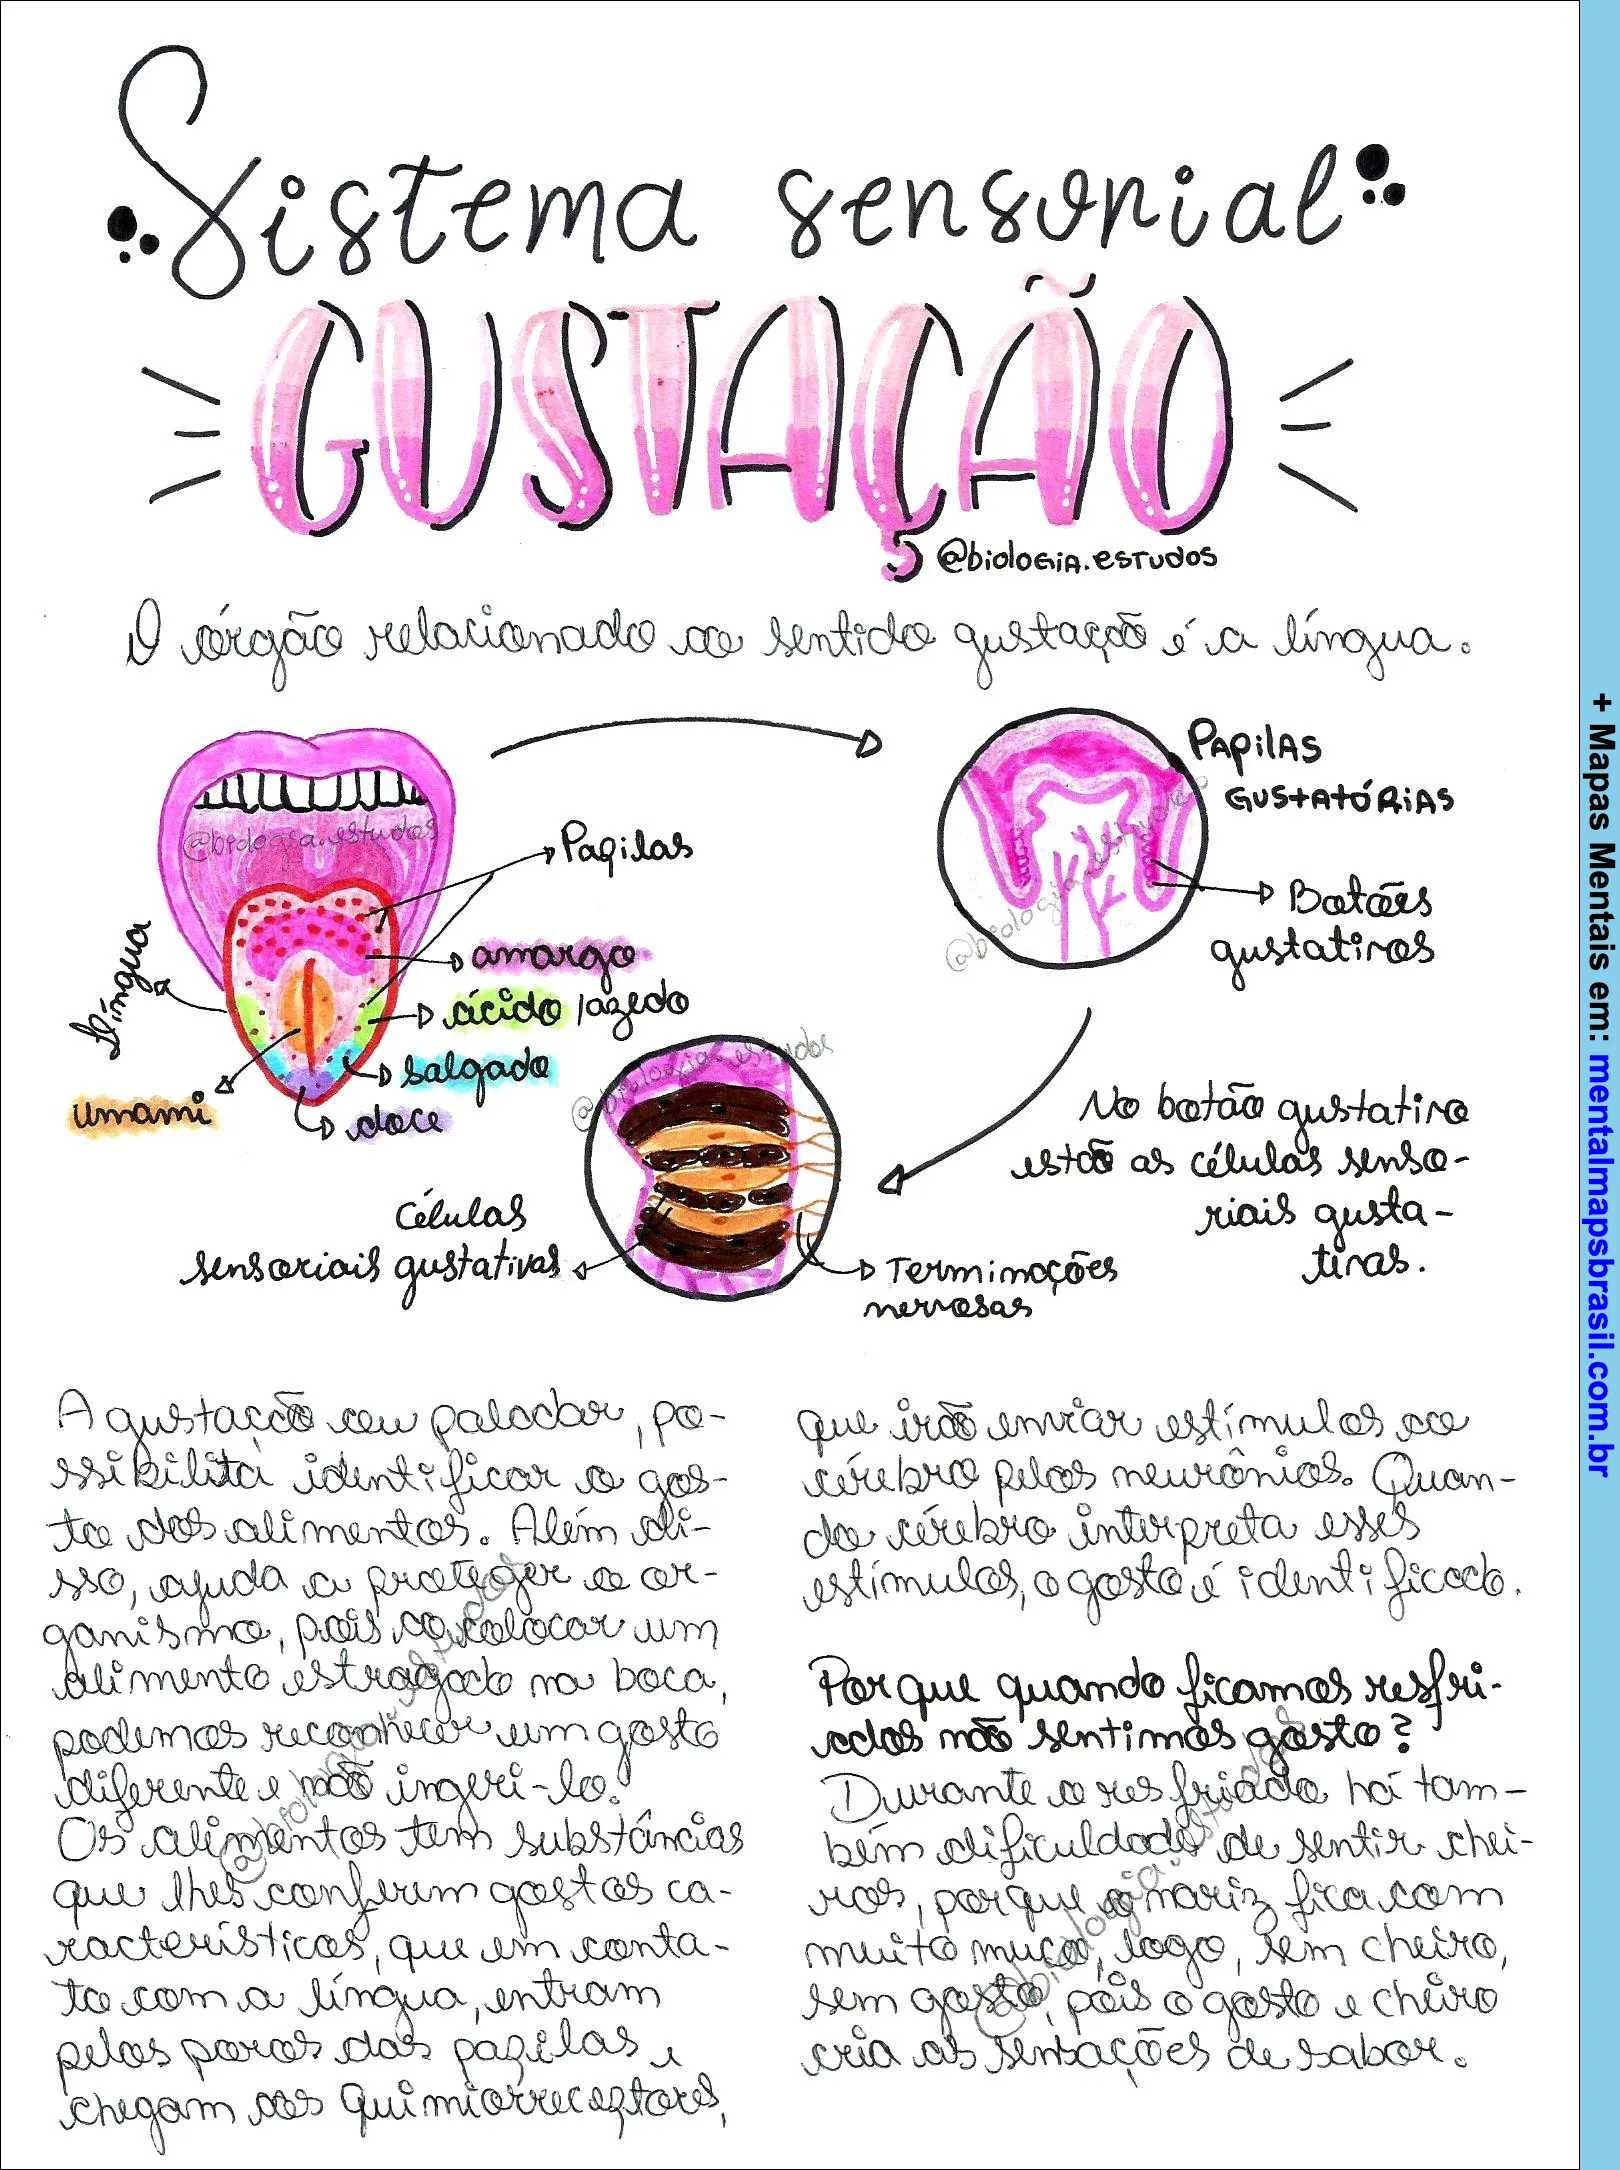 Sistema sensorial
GUSTAÇÃO
@biologia.estudos
O órgão relacionado ao sentido gustação é a língua.
PAPILAS
GUSTATÓRIAS
@biologia.estudos
Papilas
Botões
gustativos
@biologia.estudos
língua
amargo
ácido/azedo
salgado
umami
doce
@biologia.estudos
No botão gustativo
estão as células senso-
riais gusta-
tivas.
Células
sensoriais gustativas
Terminações
nervosas
A gustação ou paladar, po-
ssibilita identificar o gos-
to dos alimentos. Além di-
sso, ajuda a proteger o or-
ganismo, pois ao colocar um
alimento estragado na boca,
podemos reconhecer um gosto
diferente e não ingeri-lo.
Os alimentos tem substâncias
que lhes conferem gostos ca-
racterísticos, que em conta-
to com a língua, entram
pelos poros das papilas e
chegam aos quimiorreceptores,
@biologia.estudos
que irão enviar estímulos ao
cérebro pelos neurônios. Quan-
do cérebro interpreta esses
estímulos, o gosto é identificado.
Por que quando ficamos resfri-
ados não sentimos gosto?
Durante o resfriado há tam-
bém dificuldade de sentir chei-
ros, porque o nariz fica com
muito muco, logo, sem cheiro,
sem gosto, pois o gosto e cheiro
cria as sensações de sabor.
@biologia.estudos
+ Mapas Mentais em: mentalmapsbrasil.com.br